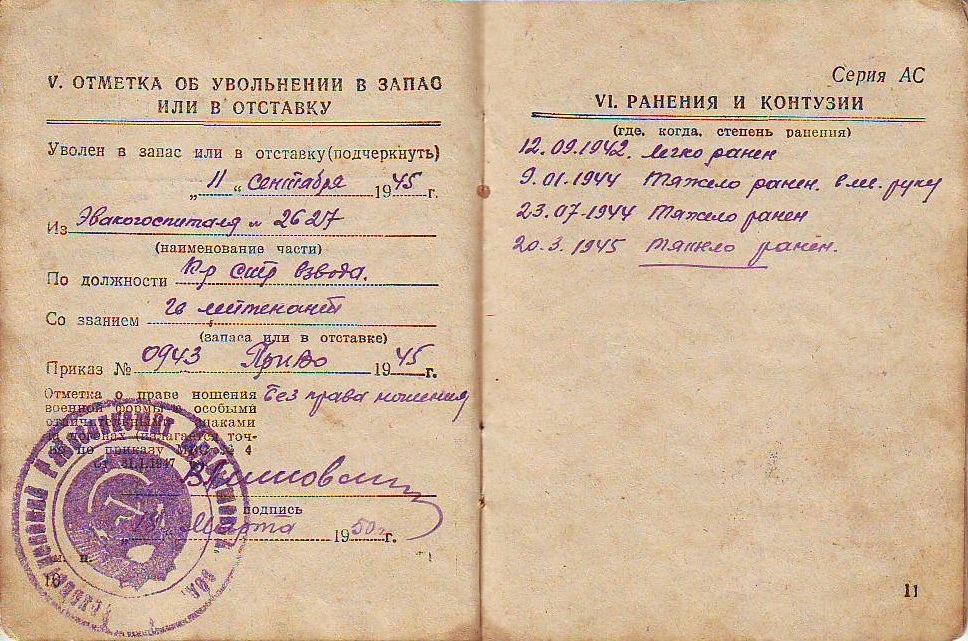 V. ОТМЕТКА ОБ УВОЛЬНЕНИИ В ЗАПАС
ИЛИ В ОТСТАВКУ
Уволен в запас или в отставку (подчеркнуть)
„11" сентября 1945 г.
Из Эвакогоспиталя № 2627
(наименование части)
По должности К-р стр взвода.
Со званием гв лейтенант
(запаса или в отставке)
Приказ № 0943 ПриВо 1945 г.
Отметка о праве ношения без права ношения
военной формы с особыми
отличительными знаками
на погонах (излагается точ-
но по приказу МВС № 4
от 31.I.1947
подпись
Марта 1950 г.
м. п.
10
Серия АС
VI. РАНЕНИЯ И КОНТУЗИИ
(где, когда, степень ранения)
12.09.1942. легко ранен
9.01.1944 тяжело ранен. в ле. руку
23.07.1944 тяжело ранен
20.3.1945 тяжело ранен.
11